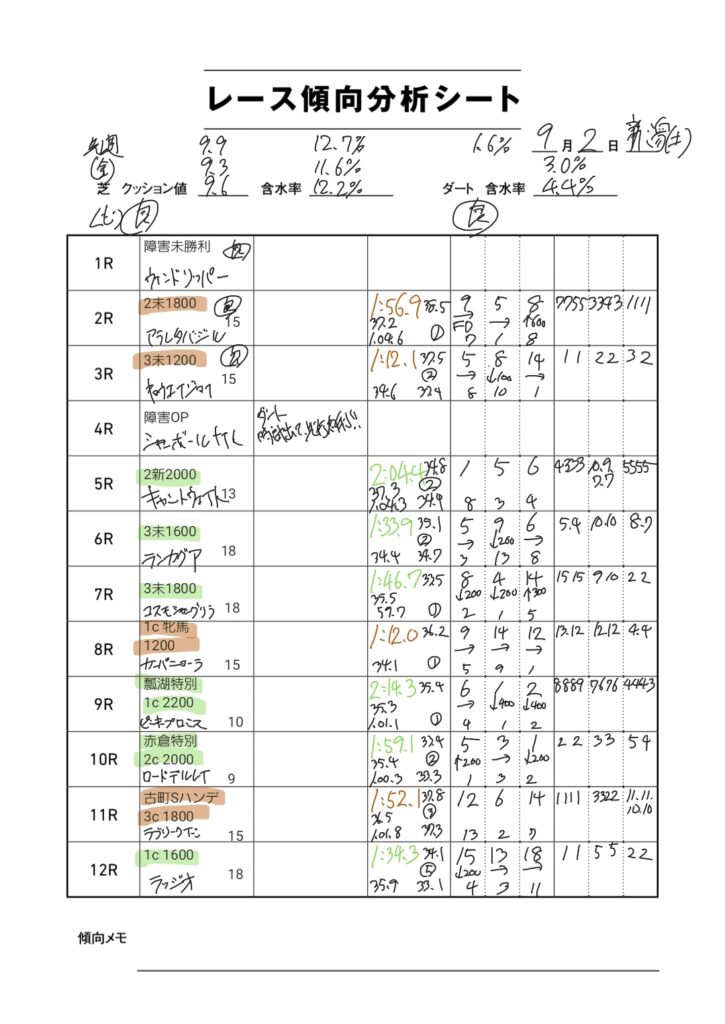 レース傾向分析シート
先週 9.9 12.7% 1.6% 9月2日 新潟(土)
(金) 9.3 11.6% 3.0%
芝 クッション値 9.6 含水率 12.2% ダート 含水率 4.4%
(土) 良 良
1R 障害未勝利
ウインドリッパー
2R 2未1800 15 1:56.9 38.5 9 5 8 7755 3343 1111
37.2 → FD → ↑600
アラレタバジル 1.09.6 ① 7 1 8
3R 3未1200 15 1:12.1 37.5 5 8 14 11 22 32
② → ↓100 →
34.6 37.4 8 10 1
4R 障害OP
ダート
5R 2新2000 13 2:04.4 34.8 1 5 6 4333 10.9 5555
37.3 ② 7.7
キャントウェイト 1.04.3 34.9 8 3 4
6R 3未1600 18 1:33.9 35.1 5 9 6 5.4 10.10 8.7
② → ↓200 →
ランカグア 34.4 34.7 3 13 8
7R 3未1800 18 1:46.7 35.5 8 4 14 1515 9 10 22
35.5 ↓200 ↓200 ↑300
コスモシャングリラ 59.7 ① 2 1 5
8R 1c 牝馬
1200 15 1:12.0 36.2 9 14 12 13.12 12.12 4.4
→ → →
カンパニョーラ 34.1 ① 5 9 1
9R 瓢湖特別
1c 2200 10 2:14.3 35.4 6 1 2 8889 7676 4443
35.3 → ↓400 ↓400
ピーネプロミス 1.01.1 ① 4 1 2
10R 赤倉特別
2c 2000 9 1:59.1 33.4 5 3 1 22 33 54
35.4 ② ↑200 → ↓200
ロードデルレイ 1.00.3 33.3 1 3 2
11R 古町Sハンデ
3c 1800 15 1:52.1 37.8 12 6 14 1111 3322 11.11.
36.5 ③ 10.10
ラブリークイーン 1.01.8 37.3 13 2 7
12R 1c 1600 18 1:34.3 34.1 15 13 18 11 55 22
⑤ ↓200 → →
ラッジオ 35.9 33.1 4 3 11
傾向メモ